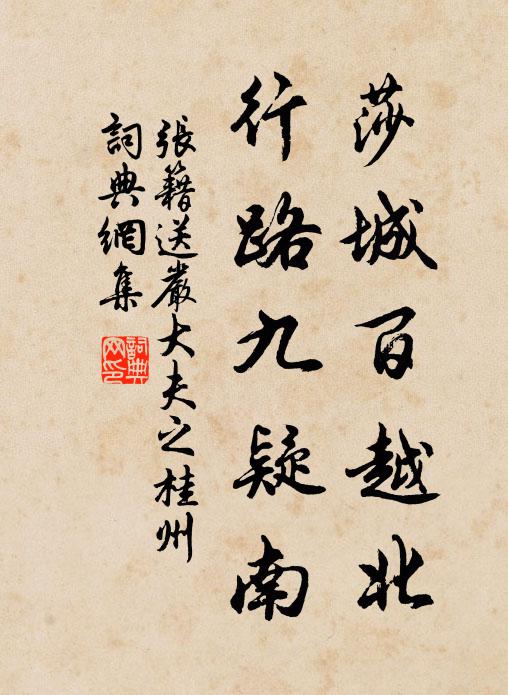 莎城百越北
行路九疑南
張籍送嚴大夫之桂州
詞典網集
詞典網印